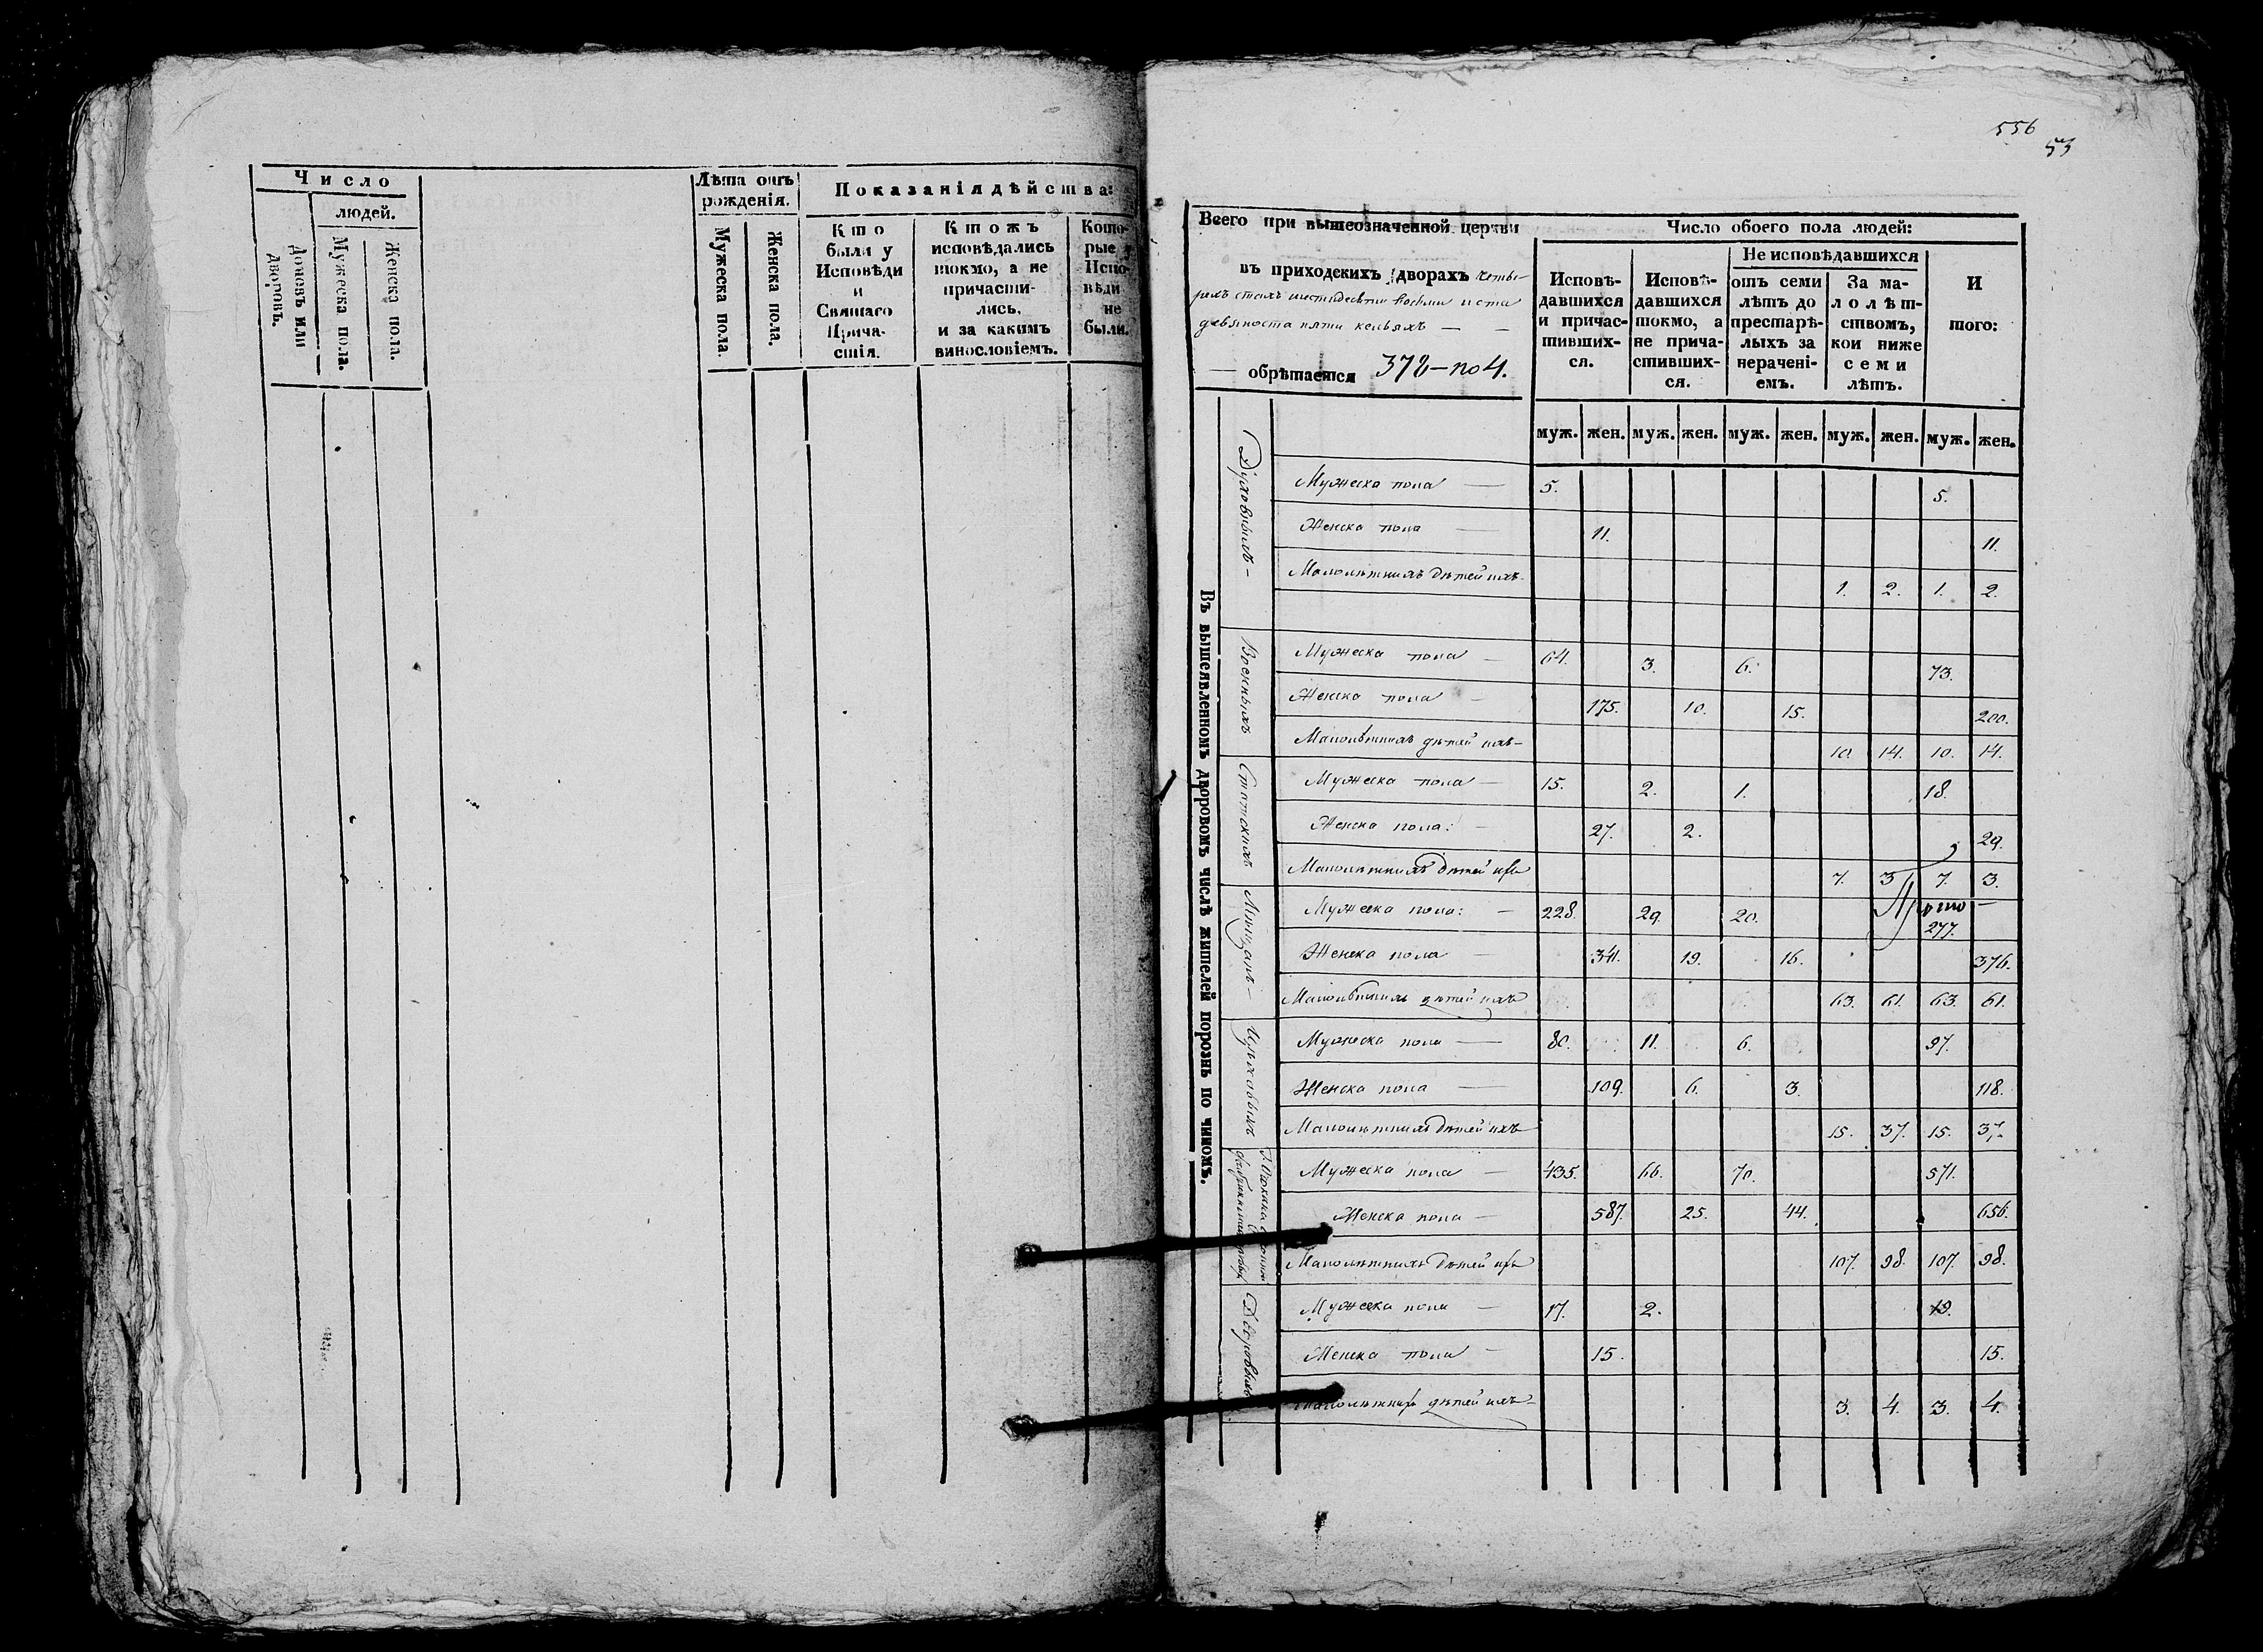 556
53
Число
людей.
Домовъ или дворовъ.
Мужеска пола.
Женска пола.
Лѣта отъ
рожденія.
Мужеска пола.
Женска пола.
Показанія дѣйства:
Кто
были у
Исповѣди
и
Святаго
Прича-
стія.
Ктожъ
исповѣдались
токмо, а не
причасти-
лись,
и за какимъ
винословіемъ.
Кото-
рые у
Испо-
вѣди
не
были.
Всего при вышеозначенной церкви
въ приходскихъ дворахъ четы-
рехъ стахъ шестидесяти восьми и ста
девяноста пяти кельяхъ —
— обрѣтается 372 — по 4.
Число обоего пола людей:
Исповѣ-
давшихся
и причас-
тивших-
ся.
Исповѣ-
давшихся
токмо, а
не прича-
стивших-
ся.
Не исповѣдавшихся
отъ семи
лѣтъ до
престарѣ-
лыхъ за
нерачені-
емъ.
За ма-
лолѣт-
ствомъ,
кои ниже
семи
лѣтъ.
И
того:
муж. жен. муж. жен. муж. жен. муж. жен. муж. жен.
Въ вышеявленномъ дворовомъ числѣ жителей порознь по чиномъ.
Духовныхъ —
Мужеска пола — 5. 5.
Женска пола — 11. 11.
Малолѣтнихъ дѣтей ихъ 1. 2. 1. 2.
Военныхъ
Мужеска пола — 64. 3. 6. 73.
Женска пола — 175. 10. 15. 200.
Малолѣтнихъ дѣтей ихъ — 10. 14. 10. 14.
Статскихъ
Мужеска пола — 15. 2. 1. 18.
Женска пола: — 27. 2. 29.
Малолѣтнихъ дѣтей ихъ 7. 3 7. 3.
Мѣщанъ —
Мужеска пола: — 228. 29. 20. 277.
Женска пола — 341. 19. 16. 376.
Малолѣтнихъ дѣтей ихъ 63. 61. 63. 61.
Цѣховыхъ
Мужеска пола — 80. 11. 6. 97.
Женска пола — 109. 6. 3. 118.
Малолѣтнихъ дѣтей ихъ 15. 37. 15. 37.
Мужеска пола — 435. 66. 70. 571.
Женска пола — 587. 25. 44. 656.
Малолѣтнихъ дѣтей ихъ 107. 98. 107. 98.
Дворовыхъ
Мужеска пола — 17. 2. 19.
Женска пола — 15. 15.
Малолѣтнихъ дѣтей ихъ 3. 4. 3. 4.